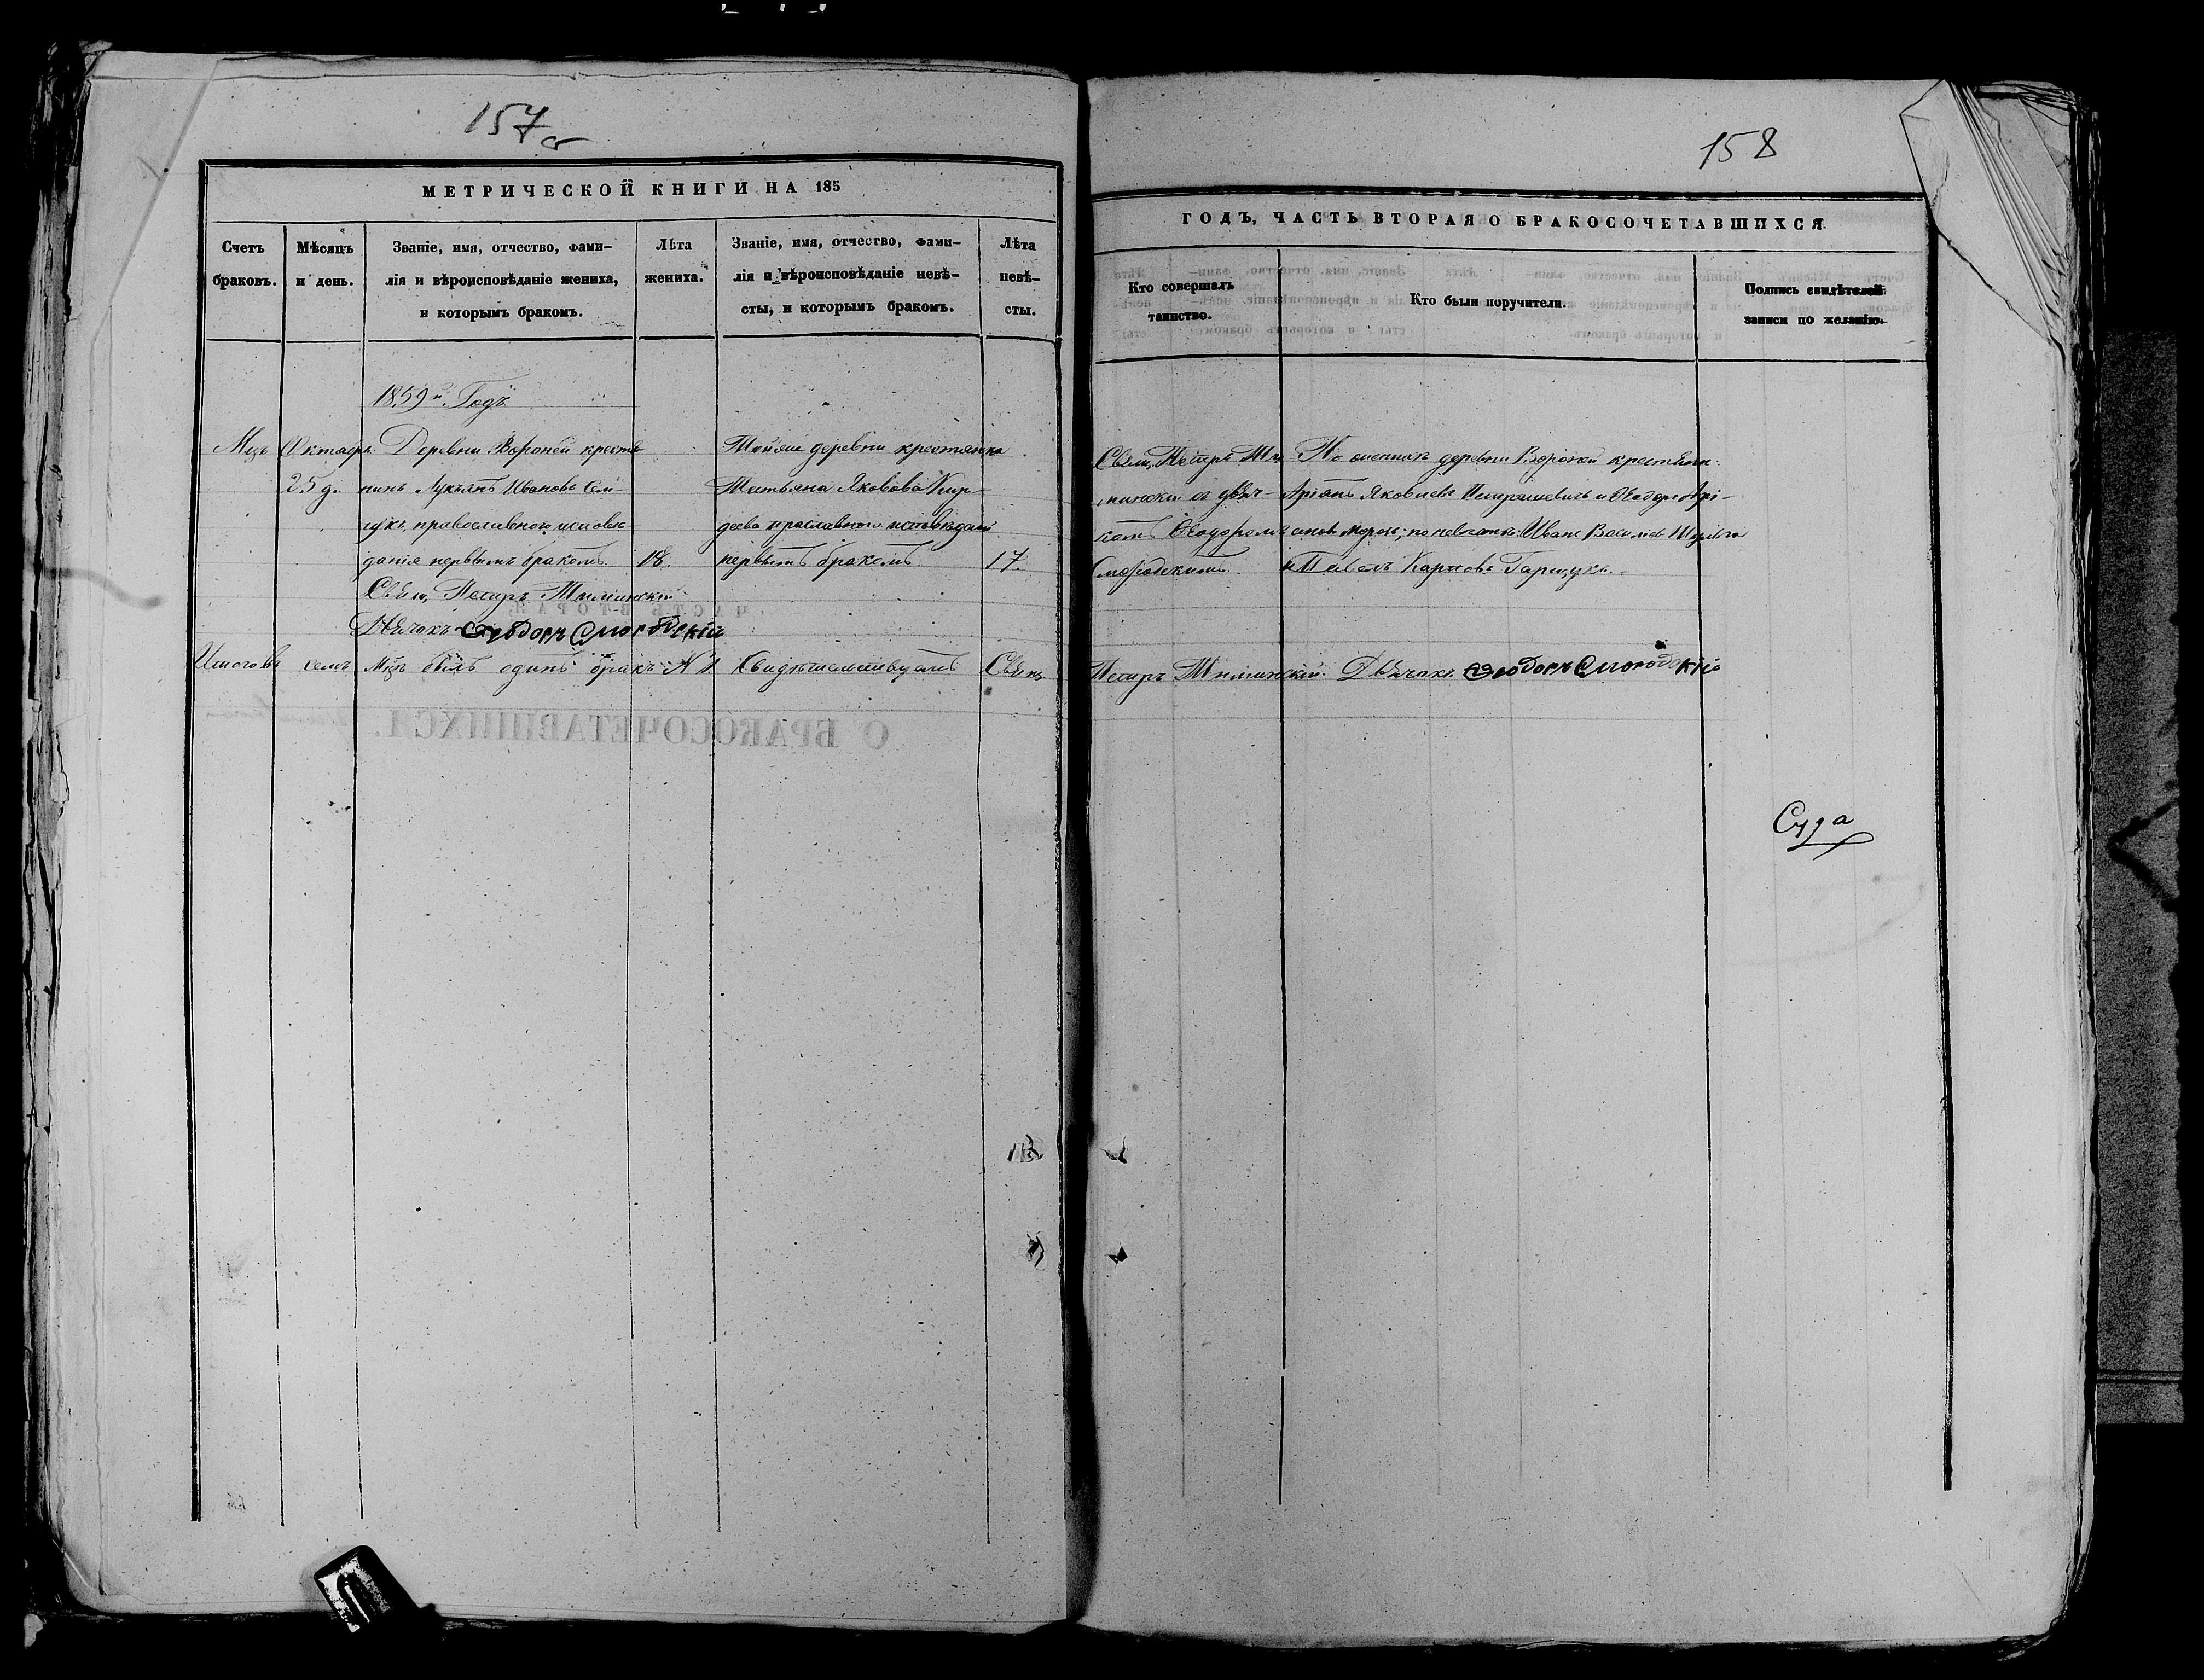 157
МЕТРИЧЕСКОЙ КНИГИ НА 185
Счетъ браковъ.
Мѣсяцъ и день.
Званіе, имя, отчество, фами-
лія и вѣроисповѣданіе жениха,
и которымъ бракомъ.
Лѣта жениха.
Званіе, имя, отчество, фами-
лія и вѣроисповѣданіе невѣ-
сты, и которымъ бракомъ.
Лѣта невѣ-
сты.
1859й Годъ
Мцъ Октябрь
25 д.
Деревни Вороней крестья
нинъ Лукьянъ Ивановъ Сем-
православнаго исповѣ
данія первымъ бракомъ
18.
Свящ. Петръ
Дьячокъ Ѳеодоръ Смородскій
Тойже деревни крестьянка
Татьяна Яковова Кир-
деева праславнаго исповѣданія
первымъ бракомъ
17.
Итого въ семъ Мцѣ былъ одинъ бракъ N 1. Свидѣтельствуемъ Свящ.
158
ГОДЪ, ЧАСТЬ ВТОРАЯ О БРАКОСОЧЕТАВШИХСЯ.
Кто совершалъ
таинство.
Кто были поручители.
Подпись свидѣтелей
записи по желанію.
Свящ. Петръ
съ дьяч-
комъ Ѳеодоромъ
Смородскимъ.
По женихѣ деревни Вороней крестьяни:
Яковлевъ и Ѳеодоръ
по невѣстѣ: Иванъ Василіевъ
и Павелъ Карповъ Гарщукъ.
Петръ Дьячокъ Ѳеодоръ Смородскій